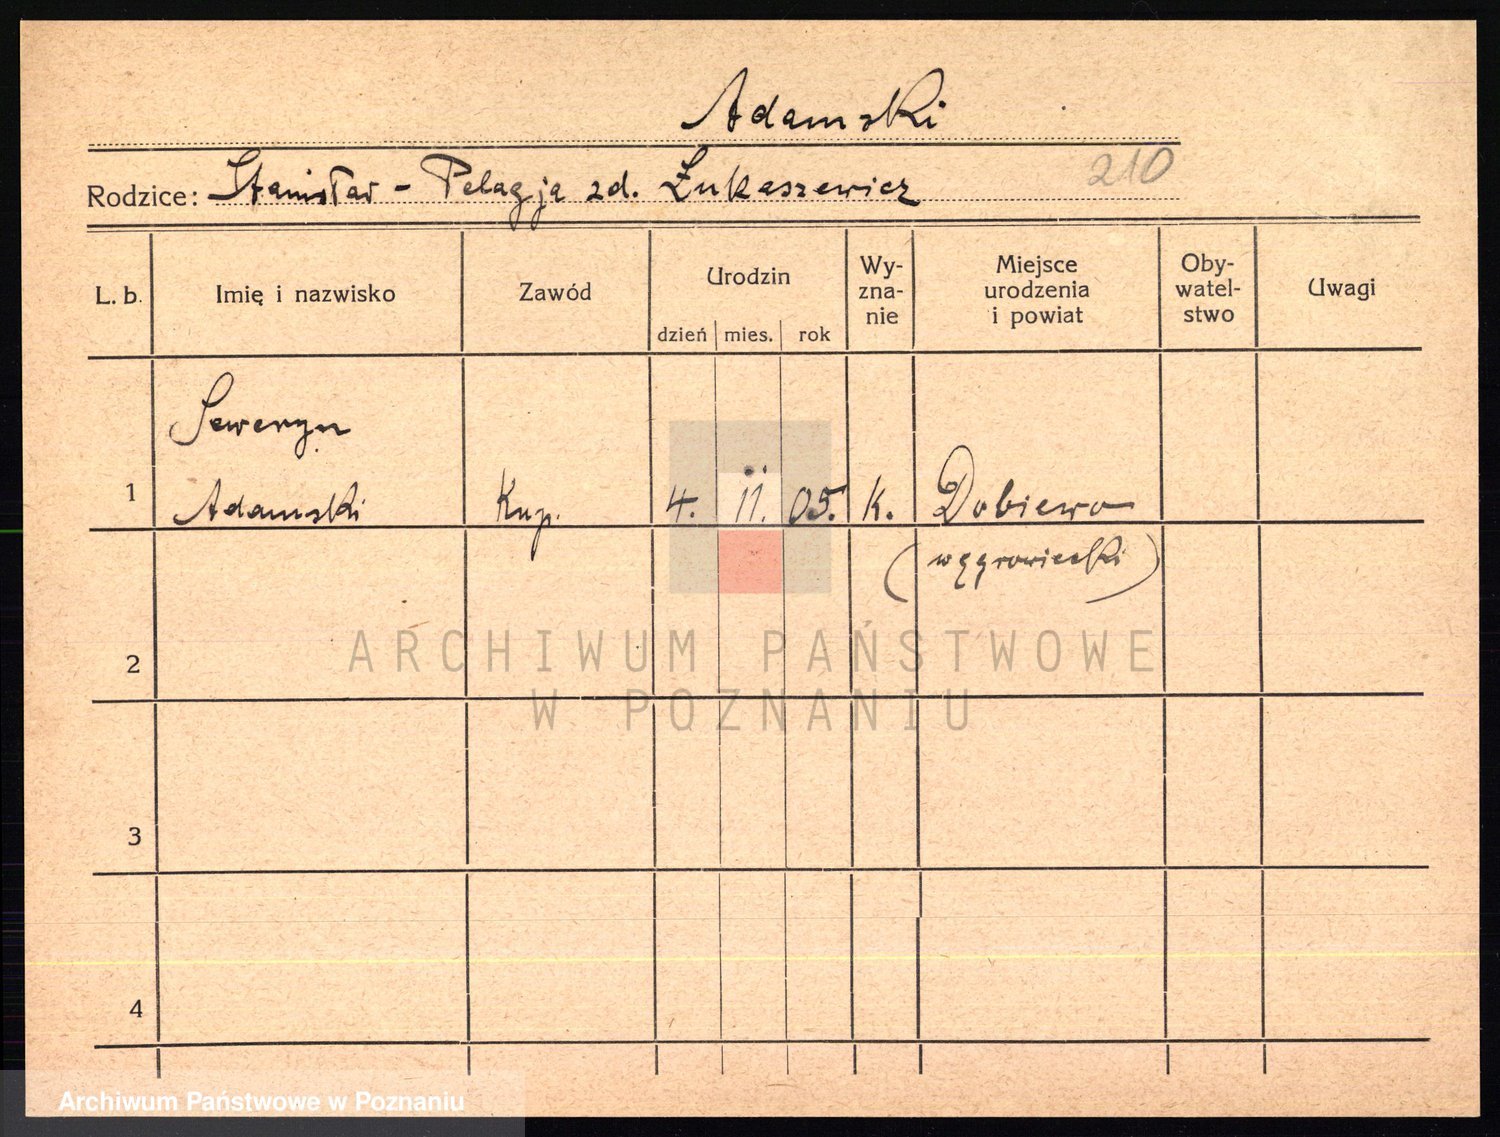 Adamski
210
Rodzice: Stanisław - Pelagja zd. Łukaszewicz
L. b.
Imię i nazwisko
Zawód
Urodzin
dzień mies. rok
Wy-
zna-
nie
Miejsce
urodzenia
i powiat
Oby-
watel-
stwo
Uwagi
Seweryn
1 Adamski Kup. 4. 11. 05. k. Dobiewo
(wągrowiecki)
2
ARCHIWUM PAŃSTWOWE
W POZNANIU
3
4
Archiwum Państwowe w Poznaniu